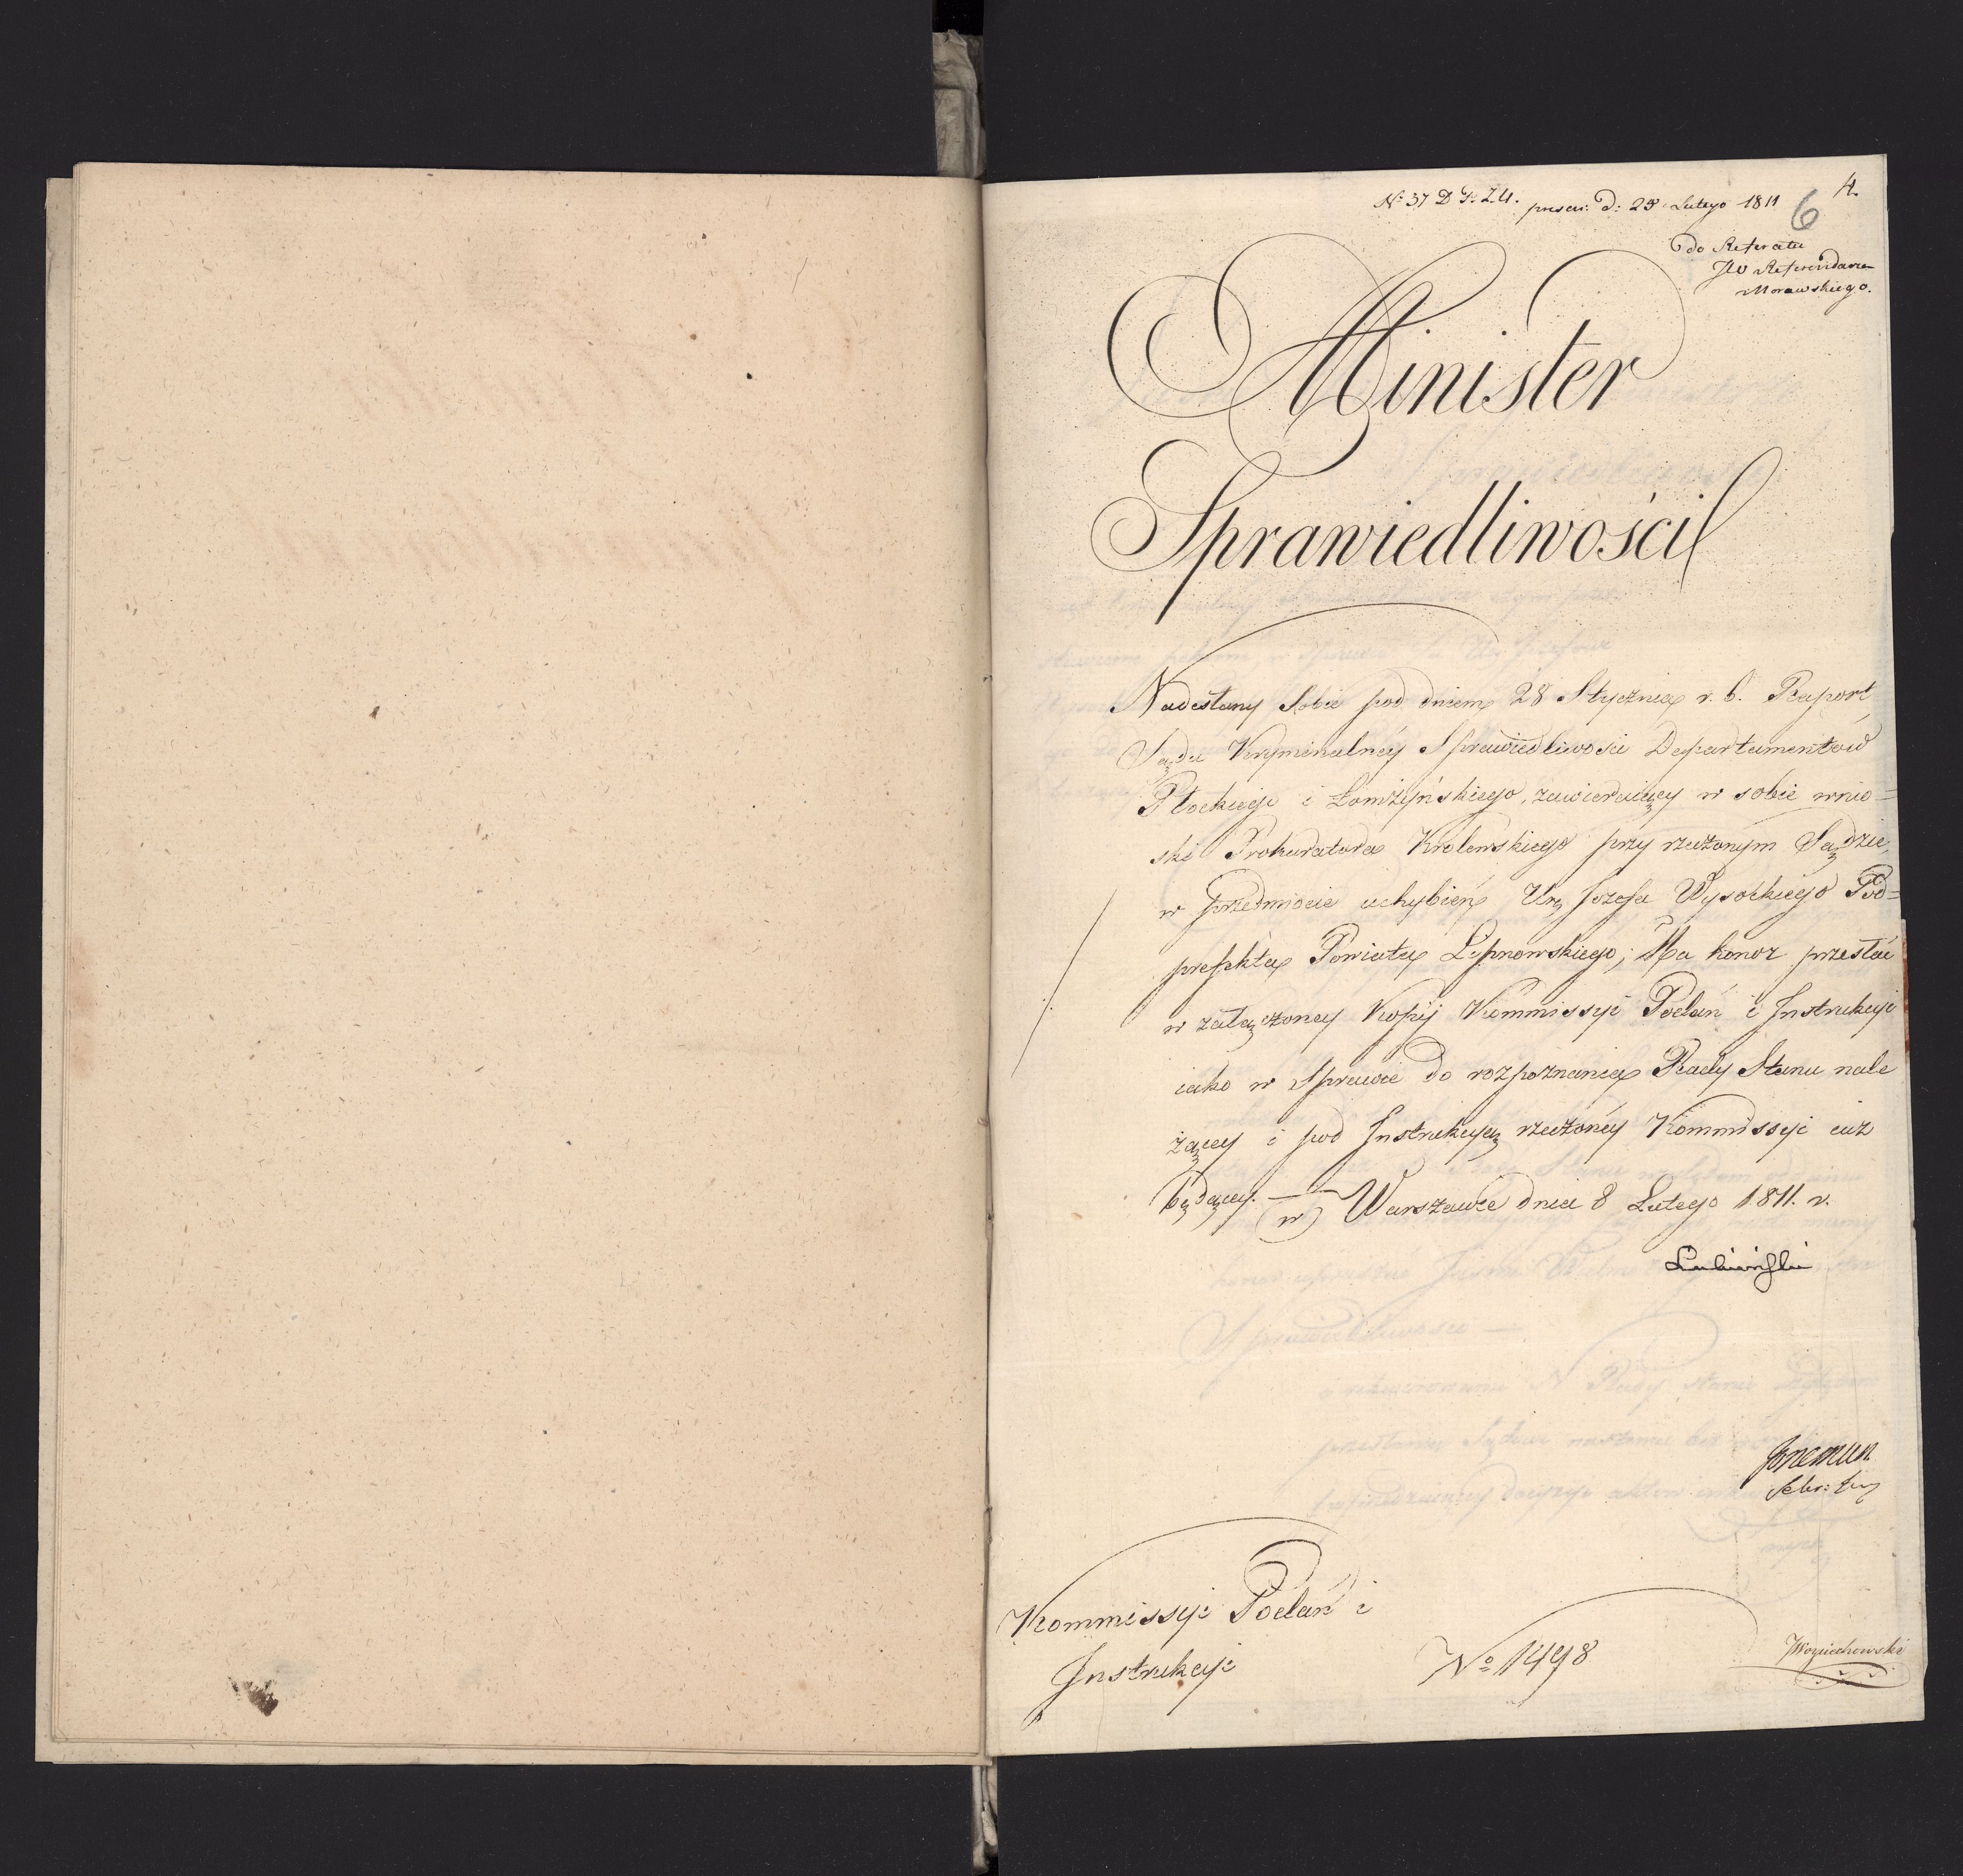 4.
6
presen: d: 28 Lutego 1811
do Referatu
JW Referendarza
Morawskiego.
Minister
Sprawiedliwości
Nadesłany Sobie pod dniem 28 Stycznia r. b. Raport
Sądu Kryminalnéy Sprawiedliwosci Departamentów
Płockiego i Łomżyńskiego, zawieraiący w sobie wnio=
ski Prokuratora Krolewskiego przy rzeczonym Sądzie,
w przedmiocie uchybień Ur. Jozefa Wysockiego Pod=
prefekta Powiatu Lipnowskiego; Ma honor przesłać
w załączoney Kopij Kommissyi Podań i Instrukcyi
iako w Sprawie do rozpoznania Rady Stanu nale
żącey i pod Instrukcyą rzeczonéy Kommissyi iuż
będącey. w Warszawie dnia 8 Lutego 1811. r.
Łubieński
Sekr: Jen
Kommissyi Podań i
Instrukcyi
No 1498
Woyciechowski